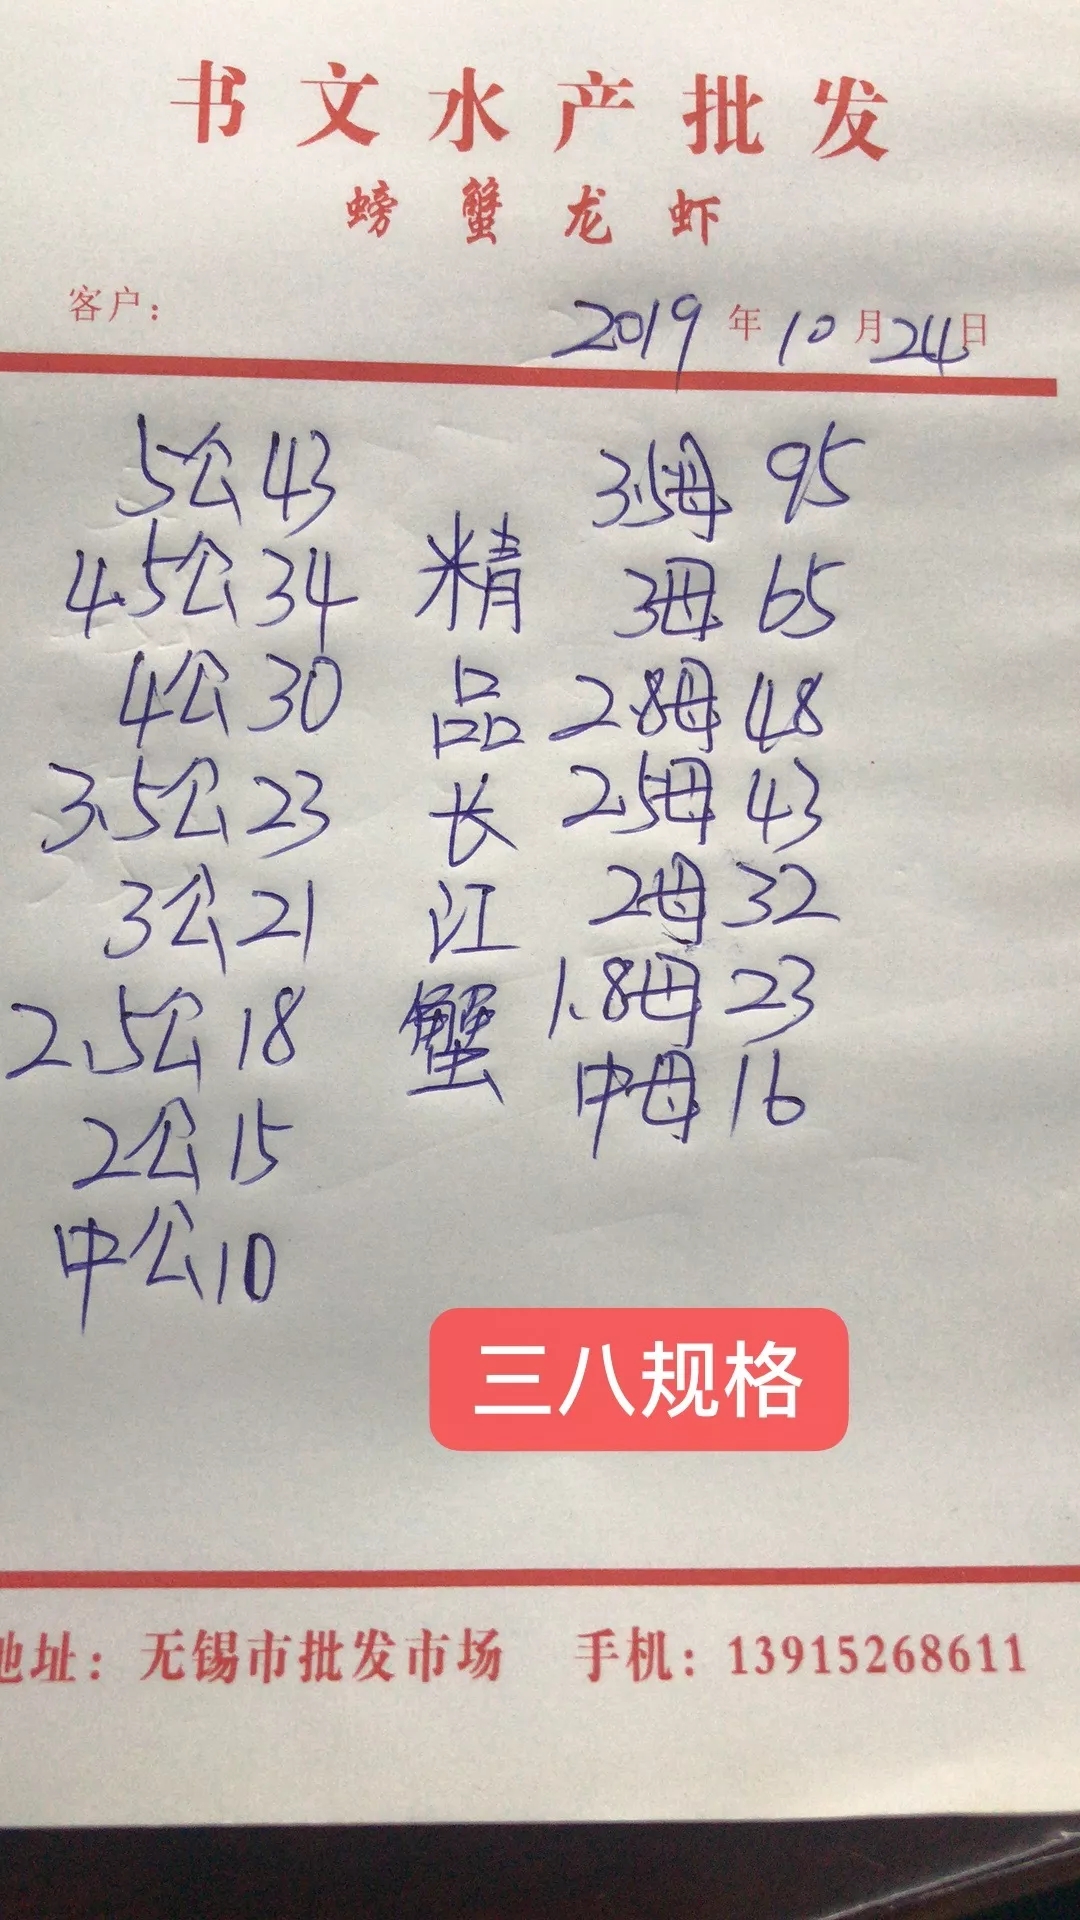 书文水产批发
螃蟹龙虾
客户：
2019年10月24日
5公43
4.5公34
4公30
3.5公23
3公21
2.5公18
2公15
中公10
精品长江蟹
3.5母 95
3母 65
2.8母 48
2.5母 43
2母 32
1.8母 23
中母 16
三八规格
地址：无锡市批发市场 手机：13915268611